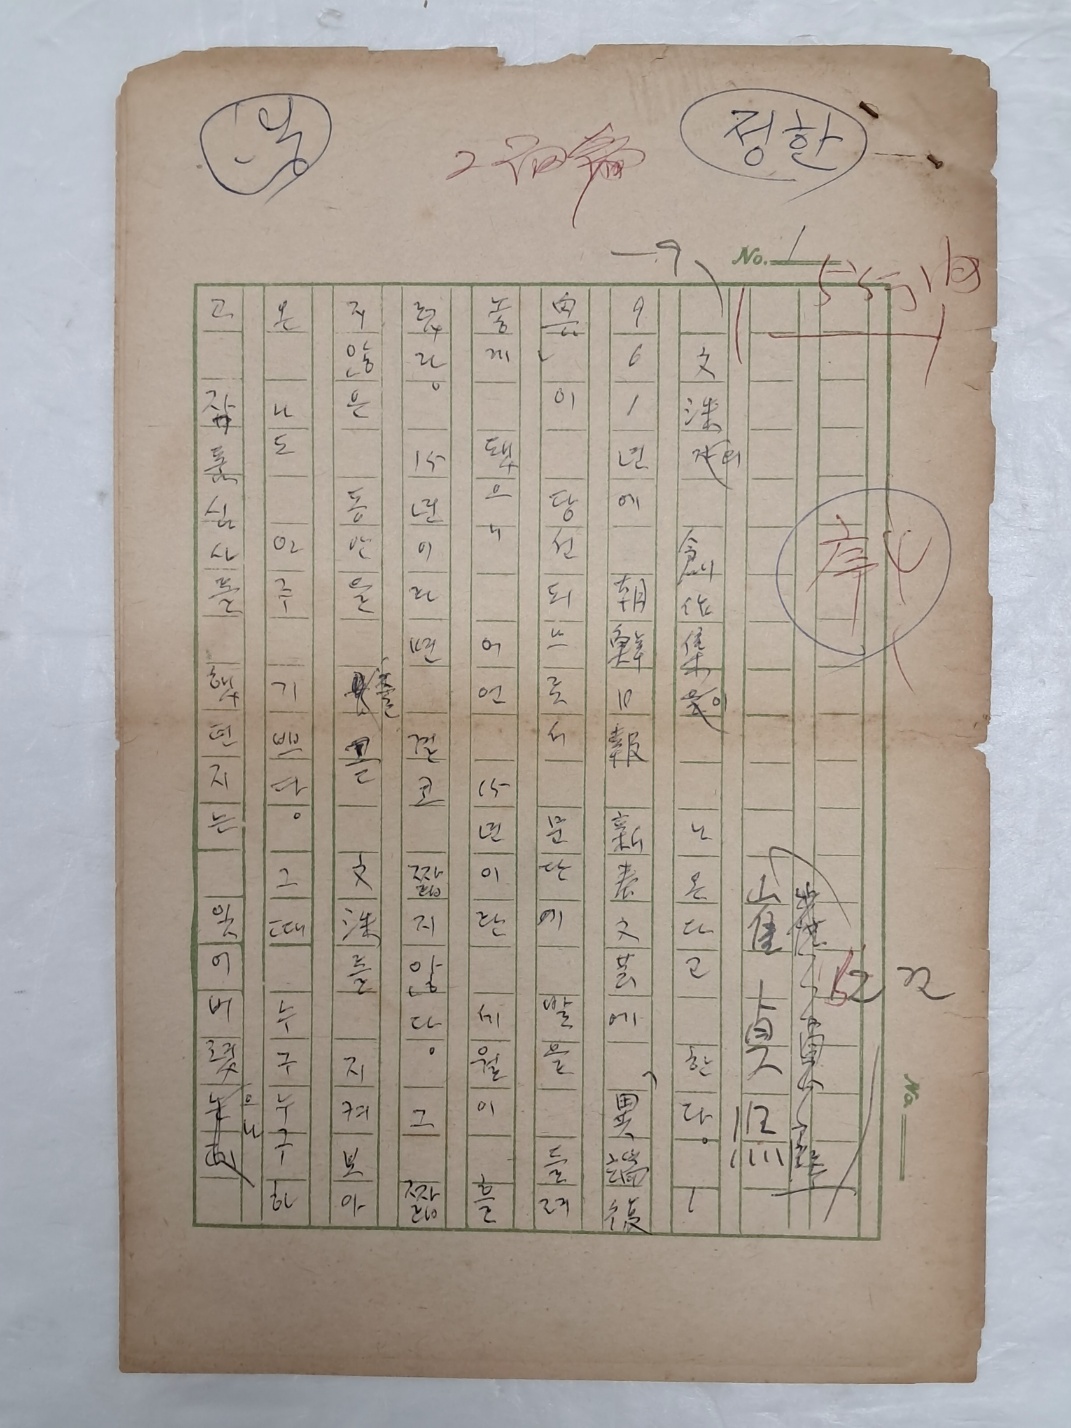 정한
No. 1
崔貞熙
文洙 創作集이 나온다고 한다. 1
961년에 朝鮮日報 新春文芸에 「異端後
裔」이 당선되므로서 문단에 발을 들려
놓게 됐으니 어언 15년이란 세월이 흘
렀다. 15년이라면 결코 짧지않다. 그 짧
지않은 동안을 줄곧 文洙를 지켜보아
온 나도 아주 기쁘다. 그때 누구누구하
고 작품심사를 했던지는 잊어버렸으나
No.